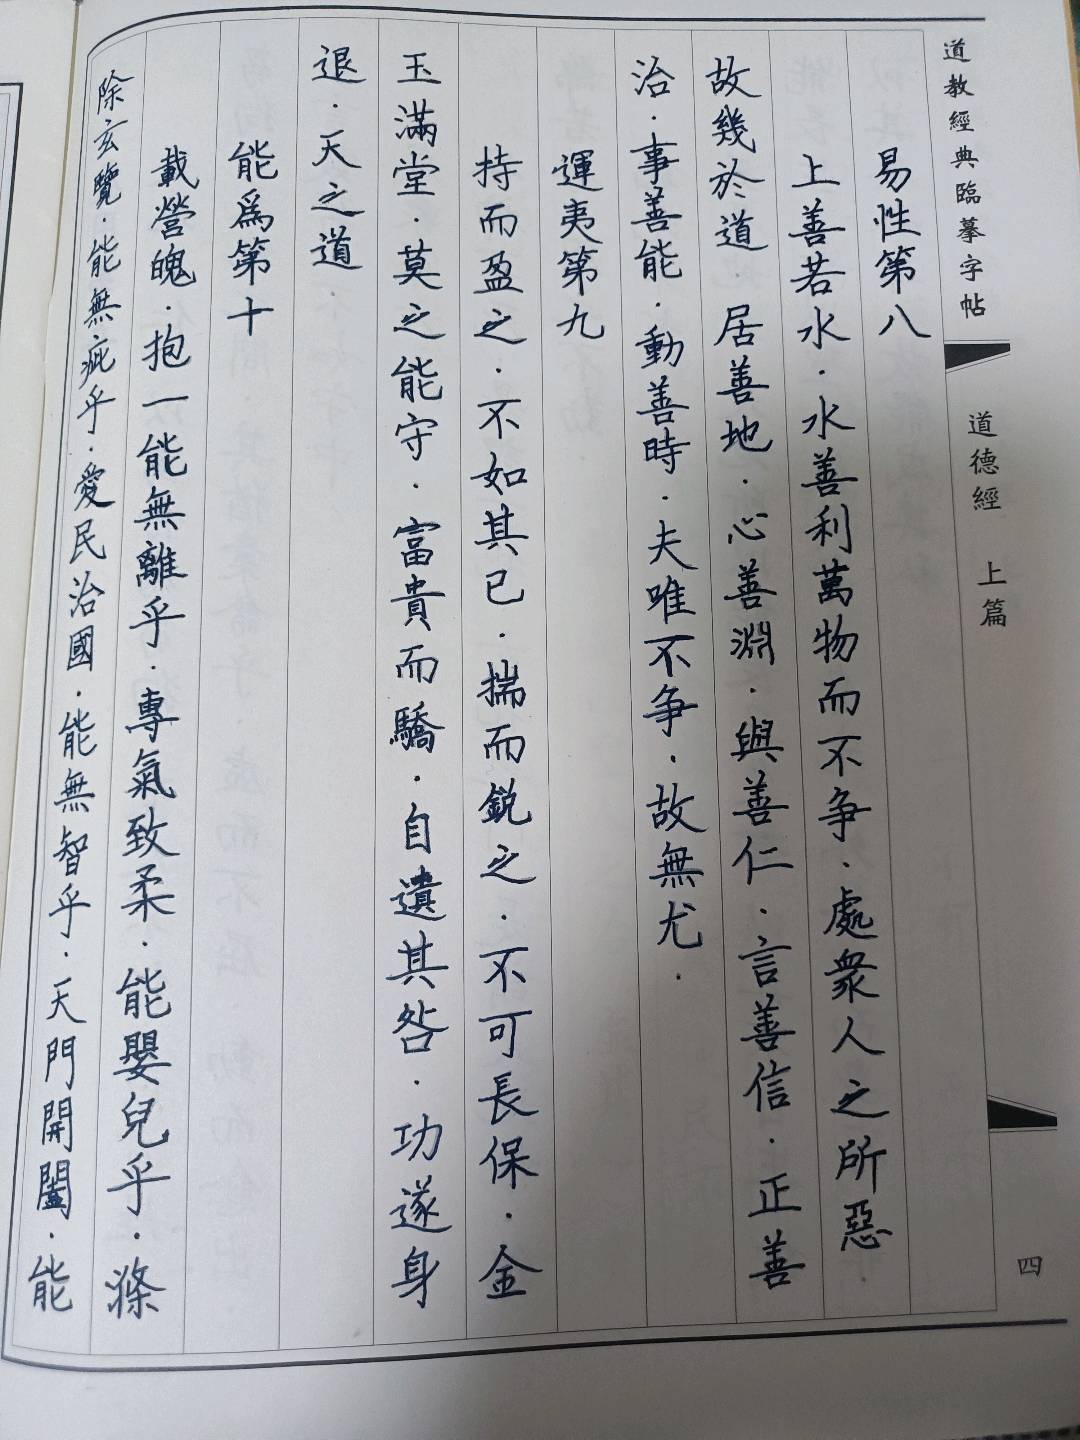 道教經典臨摹字帖 道德經 上篇 四
易性第八
上善若水．水善利萬物而不争．處衆人之所惡．
故幾於道．居善地．心善淵．與善仁．言善信．正善
治．事善能．動善時．夫唯不争．故無尤．
運夷第九
持而盈之．不如其已．揣而鋭之．不可長保．金
玉滿堂．莫之能守．富貴而驕．自遺其咎．功遂身
退．天之道．
能爲第十
載營魄．抱一能無離乎．專氣致柔．能嬰兒乎．滌
除玄覽．能無疵乎．愛民治國．能無智乎．天門開闔．能